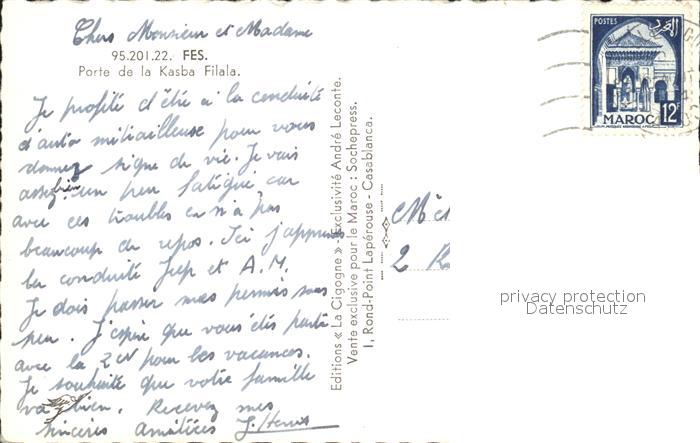 Chers Monsieur et Madame
95.201.22. FES.
Porte de la Kasba Filala.
Je profite d'être à la conduite
d'auto mitrailleuse pour vous
donnez signe de vie. Je vais
assez bien un peu fatigué, car
avec ces troubles on n'a pas
beaucoup de repos. Ici j'apprends
la conduite Jeep et A.M.
Je dois passer mes permis sous
peu. J'espère que vous êtes partis
avec la 2 CV pour les vacances.
Je souhaite que votre famille
va bien. Recevez mes
sincères amitiées
Editions « La Cigogne » - Exclusivité André Leconte.
Vente exclusive pour le Maroc : Sochepress.
1, Rond-Point Lapérouse - Casablanca.
POSTES
MAROC 12F
2
privacy protection
Datenschutz